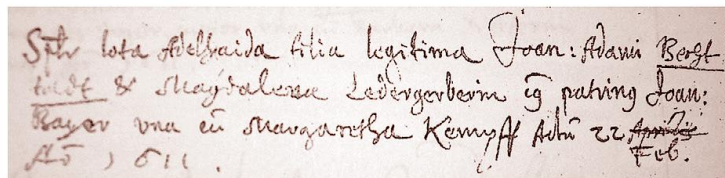 Sptr lota Adelhaida filia legitima Joan: Adami Berst-
tadt & Magdalena Ledergerberin cq patring Joan:
Bayer una cu Margaretha Kempff Actu 22 Aprilis
Ao 1611. Feb.